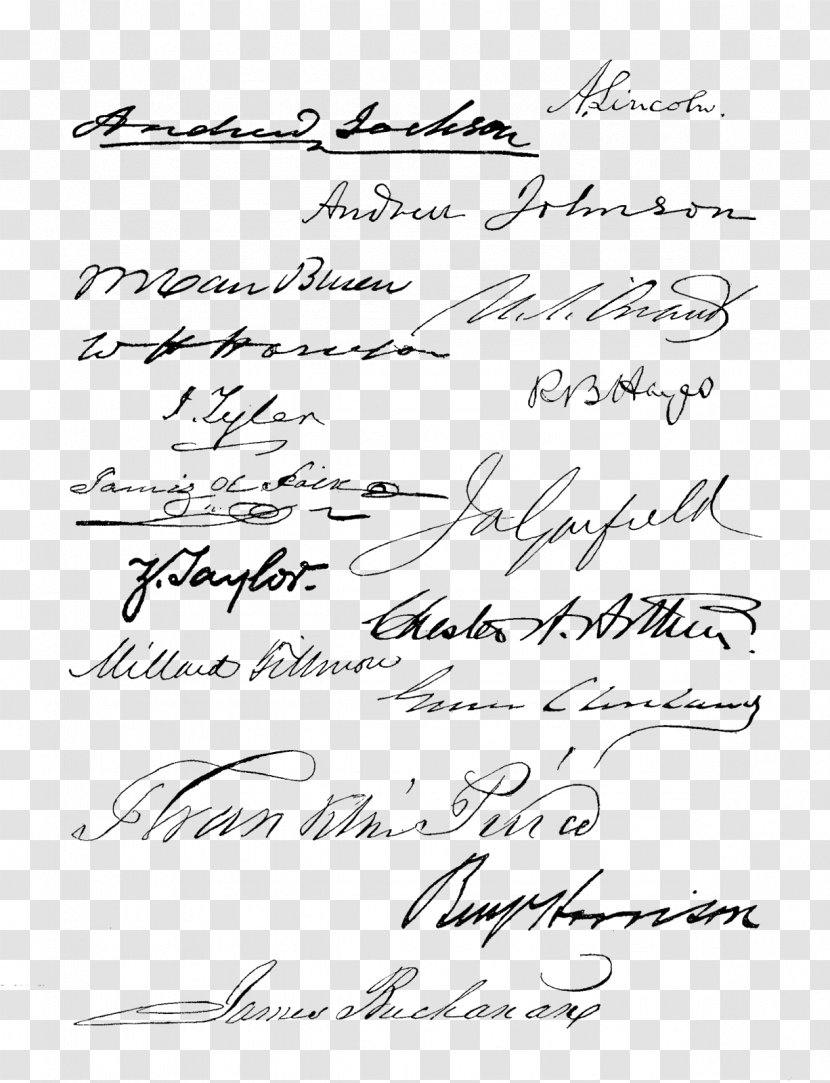 Andrew Jackson
A. Lincoln.
Andrew Johnson
M Van Buren
U. S. Grant
W H Harrison
R B Hayes
J. Tyler
James K Polk
J A Garfield
Z. Taylor.
Chester A. Arthur.
Millard Fillmore
Grover Cleveland
Franklin Pierce
Benj Harrison
James Buchanan